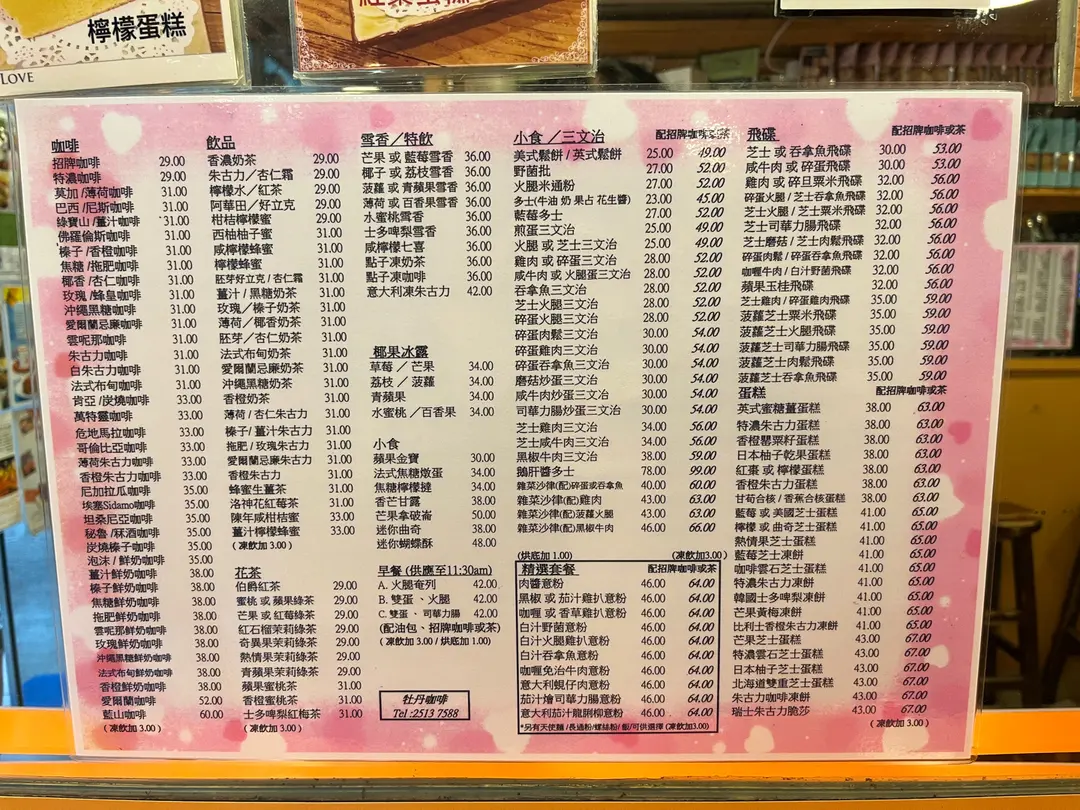 檸檬蛋糕
LOVE
咖啡
招牌咖啡 29.00
特濃咖啡 29.00
莫加 / 薄荷咖啡 31.00
巴西 / 尼斯咖啡 31.00
綠寶山 / 薑汁咖啡 31.00
佛羅倫斯咖啡 31.00
榛子 / 香橙咖啡 31.00
焦糖 / 拖肥咖啡 31.00
椰香 / 杏仁咖啡 31.00
玫瑰 / 蜂皇咖啡 31.00
沖繩黑糖咖啡 31.00
愛爾蘭忌廉咖啡 31.00
雲呢那咖啡 31.00
朱古力咖啡 31.00
白朱古力咖啡 31.00
法式布甸咖啡 31.00
肯亞 / 炭燒咖啡 33.00
萬特靈咖啡 33.00
危地馬拉咖啡 33.00
哥倫比亞咖啡 33.00
薄荷朱古力咖啡 33.00
香橙朱古力咖啡 33.00
尼加拉瓜咖啡 35.00
埃塞Sidamo咖啡 35.00
坦桑尼亞咖啡 35.00
秘魯 / 冧酒咖啡 35.00
炭燒榛子咖啡 35.00
泡沫 / 鮮奶咖啡 35.00
薑汁鮮奶咖啡 38.00
榛子鮮奶咖啡 38.00
焦糖鮮奶咖啡 38.00
拖肥鮮奶咖啡 38.00
雲呢那鮮奶咖啡 38.00
玫瑰鮮奶咖啡 38.00
沖繩黑糖鮮奶咖啡 38.00
法式布甸鮮奶咖啡 38.00
香橙鮮奶咖啡 38.00
愛爾蘭咖啡 52.00
藍山咖啡 60.00
( 凍飲加 3.00 )
飲品
香濃奶茶 29.00
朱古力／杏仁霜 29.00
檸檬水／紅茶 29.00
阿華田／好立克 29.00
柑桔檸檬蜜 29.00
西柚柚子蜜 31.00
咸檸檬蜂蜜 31.00
檸檬蜂蜜 31.00
胚芽好立克 / 杏仁霜 31.00
薑汁 / 黑糖奶茶 31.00
玫瑰／榛子奶茶 31.00
薄荷／椰香奶茶 31.00
胚芽／杏仁奶茶 31.00
法式布甸奶茶 31.00
愛爾蘭忌廉奶茶 31.00
沖繩黑糖奶茶 31.00
香橙奶茶 31.00
薄荷 / 杏仁朱古力 31.00
榛子 / 薑汁朱古力 31.00
拖肥 / 玫瑰朱古力 31.00
愛爾蘭忌廉朱古力 31.00
香橙朱古力 31.00
蜂蜜生薑茶 31.00
洛神花紅莓茶 31.00
陳年咸柑桔蜜 33.00
薑汁檸檬蜂蜜 33.00
( 凍飲加 3.00 )
花茶
伯爵紅茶 29.00
蜜桃 或 蘋果綠茶 29.00
芒果 或 紅莓綠茶 29.00
紅石榴茉莉綠茶 29.00
奇異果茉莉綠茶 29.00
熱情果茉莉綠茶 29.00
青蘋果茉莉綠茶 29.00
蘋果蜜桃茶 31.00
香橙蜜桃茶 31.00
士多啤梨紅梅茶 31.00
( 凍飲加 3.00 )
雪香／特飲
芒果 或 藍莓雪香 36.00
椰子 或 荔枝雪香 36.00
菠蘿 或 青蘋果雪香 36.00
薄荷 或 百香果雪香 36.00
水蜜桃雪香 36.00
士多啤梨雪香 36.00
咸檸檬七喜 36.00
點子凍奶茶 36.00
點子凍咖啡 36.00
意大利凍朱古力 42.00
椰果冰露
草莓 ／ 芒果 34.00
荔枝 ／ 菠蘿 34.00
青蘋果 34.00
水蜜桃 ／百香果 34.00
小食
蘋果金寶 30.00
法式焦糖燉蛋 34.00
焦糖檸檬撻 34.00
香芒甘露 38.00
芒果拿破崙 50.00
迷你曲奇 38.00
迷你蝴蝶酥 48.00
早餐 (供應至11:30am)
A. 火腿奄列 42.00
B. 雙蛋 、火腿 42.00
C. 雙蛋 、 司華力腸 42.00
(配油包、招牌咖啡或茶)
( 凍飲加 3.00 / 烘底加 1.00)
牡丹咖啡
Tel :2513 7588
小食 ／三文治 配招牌咖啡或茶
美式鬆餅 / 英式鬆餅 25.00 49.00
野菌批 27.00 52.00
火腿米通粉 27.00 52.00
多士(牛油 奶 果占 花生醬) 23.00 45.00
藍莓多士 27.00 52.00
煎蛋三文治 25.00 49.00
火腿 或 芝士三文治 25.00 49.00
雞肉 或 碎蛋三文治 28.00 52.00
咸牛肉 或 火腿蛋三文治 28.00 52.00
吞拿魚三文治 28.00 52.00
芝士火腿三文治 28.00 52.00
碎蛋火腿三文治 28.00 52.00
碎蛋肉鬆三文治 30.00 54.00
碎蛋雞肉三文治 30.00 54.00
碎蛋吞拿魚三文治 30.00 54.00
磨菇炒蛋三文治 30.00 54.00
咸牛肉炒蛋三文治 30.00 54.00
司華力腸炒蛋三文治 30.00 54.00
芝士雞肉三文治 34.00 56.00
芝士咸牛肉三文治 34.00 56.00
黑椒牛肉三文治 38.00 59.00
鵝肝醬多士 78.00 99.00
雜菜沙律(配)碎蛋或吞拿魚 40.00 60.00
雜菜沙律(配) 雞肉 43.00 63.00
雜菜沙律(配)菠蘿火腿 43.00 63.00
雜菜沙律(配)黑椒牛肉 46.00 66.00
(烘底加 1.00) (凍飲加3.00 )
精選套餐 配招牌咖啡或茶
肉醬意粉 46.00 64.00
黑椒 或 茄汁雞扒意粉 46.00 64.00
咖喱 或 香草雞扒意粉 46.00 64.00
白汁野菌意粉 46.00 64.00
白汁火腿雞扒意粉 46.00 64.00
白汁吞拿魚意粉 46.00 64.00
咖喱免治牛肉意粉 46.00 64.00
意大利蜆仔肉意粉 46.00 64.00
茄汁燴司華力腸意粉 46.00 64.00
意大利茄汁龍脷柳意粉 46.00 64.00
*另有天使麵 / 長通粉/螺絲粉/ 飯/可供選擇 (凍飲加3.00)
飛碟 配招牌咖啡或茶
芝士 或 吞拿魚飛碟 30.00 53.00
咸牛肉 或 碎蛋飛碟 30.00 53.00
雞肉 或 碎旦粟米飛碟 32.00 56.00
碎蛋火腿 / 芝士吞拿魚飛碟 32.00 56.00
芝士火腿 / 芝士粟米飛碟 32.00 56.00
芝士司華力腸飛碟 32.00 56.00
芝士磨菇 / 芝士肉鬆飛碟 32.00 56.00
碎蛋肉鬆 / 碎蛋吞拿魚飛碟 32.00 56.00
咖喱牛肉 / 白汁野菌飛碟 32.00 56.00
蘋果玉桂飛碟 32.00 56.00
芝士雞肉 / 碎蛋雞肉飛碟 35.00 59.00
菠蘿芝士粟米飛碟 35.00 59.00
菠蘿芝士火腿飛碟 35.00 59.00
菠蘿芝士司華力腸飛碟 35.00 59.00
菠蘿芝士肉鬆飛碟 35.00 59.00
菠蘿芝士吞拿魚飛碟 35.00 59.00
蛋糕 配招牌咖啡或茶
英式蜜糖薑蛋糕 38.00 63.00
特濃朱古力蛋糕 38.00 63.00
香橙罌粟籽蛋糕 38.00 63.00
日本柚子乾果蛋糕 38.00 63.00
紅棗 或 檸檬蛋糕 38.00 63.00
香橙朱古力蛋糕 38.00 63.00
甘荀合核 / 香蕉合核蛋糕 38.00 63.00
藍莓 或 美國芝士蛋糕 41.00 65.00
檸檬 或 曲奇芝士蛋糕 41.00 65.00
熱情果芝士蛋糕 41.00 65.00
藍莓芝士凍餅 41.00 65.00
咖啡雲石芝士蛋糕 41.00 65.00
特濃朱古力凍餅 41.00 65.00
韓國士多啤梨凍餅 41.00 65.00
芒果黃梅凍餅 41.00 65.00
比利士香橙朱古力凍餅 41.00 65.00
芒果芝士蛋糕 43.00 67.00
特濃雲石芝士蛋糕 43.00 67.00
日本柚子芝士蛋糕 43.00 67.00
北海道雙重芝士蛋糕 43.00 67.00
朱古力咖啡凍餅 43.00 67.00
瑞士朱古力脆莎 43.00 67.00
( 凍飲加 3.00 )